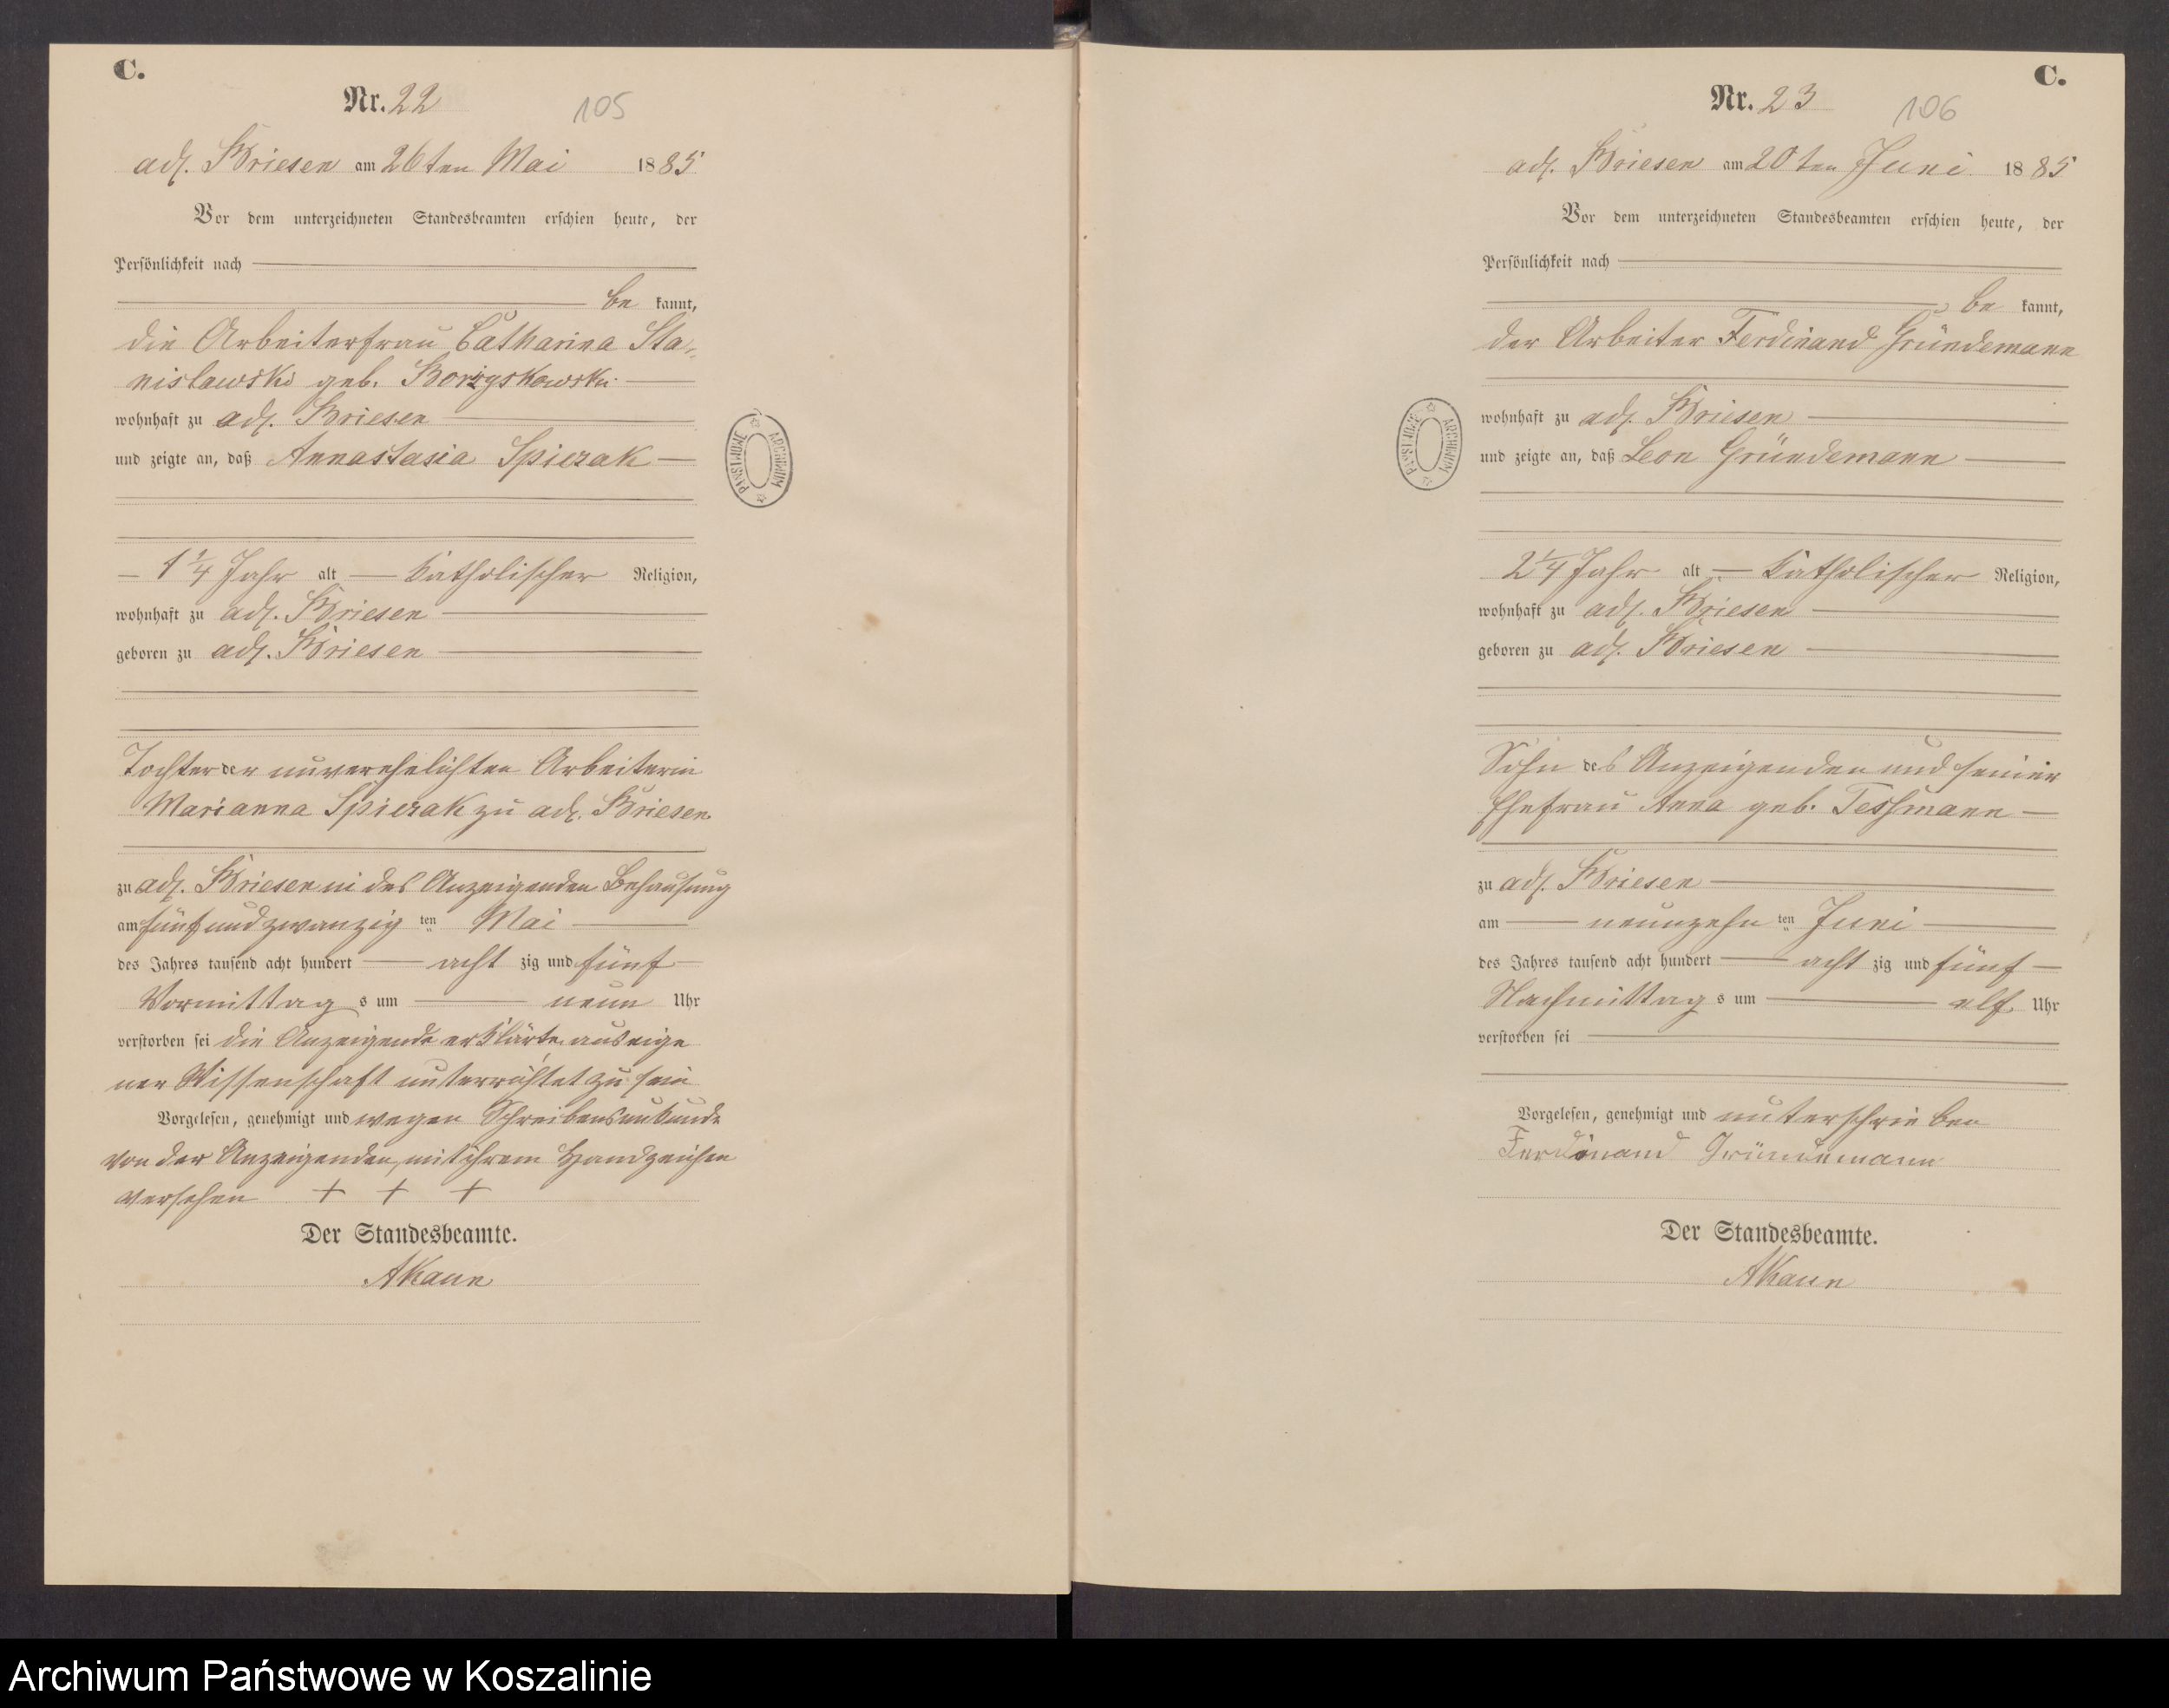 C.
Nr. 22
105
adl. Briesen am 26ten Mai 1885
Vor dem unterzeichneten Standesbeamten erschien heute, der
Persönlichkeit nach
be kannt,
die Arbeiterfrau Catharina Sta-
nislawski geb. Borzyskowski
wohnhaft zu adl. Briesen
und zeigte an, daß Annastasia Spiczak
1 1/4 Jahr alt katholischer Religion,
wohnhaft zu adl. Briesen
geboren zu adl. Briesen
Tochter der unverehelichten Arbeiterin
Marianna Spiczak zu adl. Briesen
zu adl. Briesen in des Anzeigenden Behausung
am fünfundzwanzig ten Mai
des Jahres tausend acht hundert acht zig und fünf
Vormittag s um neun Uhr
verstorben sei die Anzeigende erklärte aus eige
ner Wissenschaft unterrichtet zu sein
Vorgelesen, genehmigt und wegen Schreibensunkunde
von der Anzeigenden mit ihrem Handzeichen
versehen + + +
Der Standesbeamte.
AKaun
PAŃSTWOWE ARCHIWUM
C.
Nr. 23
106
adl. Briesen am 20ten Juni 1885
Vor dem unterzeichneten Standesbeamten erschien heute, der
Persönlichkeit nach
be kannt,
der Arbeiter Ferdinand Gründemann
wohnhaft zu adl. Briesen
und zeigte an, daß Leon Gründemann
2 1/4 Jahr alt katholischer Religion,
wohnhaft zu adl. Briesen
geboren zu adl. Briesen
Sohn des Anzeigenden und seiner
Ehefrau Anna geb. Teßmann
zu adl. Briesen
am neunzehn ten Juni
des Jahres tausend acht hundert acht zig und fünf
Nachmittag s um elf Uhr
verstorben sei
Vorgelesen, genehmigt und unterschrieben
Ferdinand Gründemann
Der Standesbeamte.
AKaun
PAŃSTWOWE ARCHIWUM
Archiwum Państwowe w Koszalinie